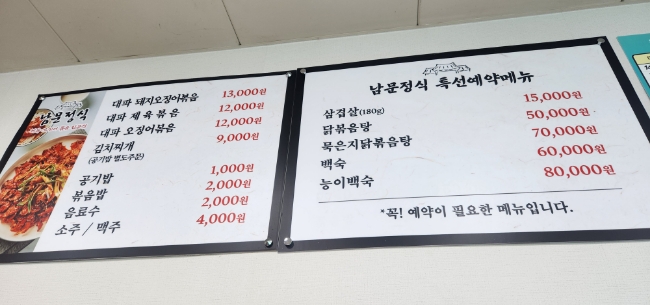 남문정식
대파 돼지오징어볶음 13,000원
대파 제육볶음 12,000원
대파 오징어볶음 12,000원
김치찌개 9,000원
(공기밥 별도주문)
공기밥 1,000원
볶음밥 2,000원
음료수 2,000원
소주 / 맥주 4,000원
남문정식 특선예약메뉴
삼겹살(180g) 15,000원
닭볶음탕 50,000원
묵은지닭볶음탕 70,000원
백숙 60,000원
능이백숙 80,000원
*꼭! 예약이 필요한 메뉴입니다.